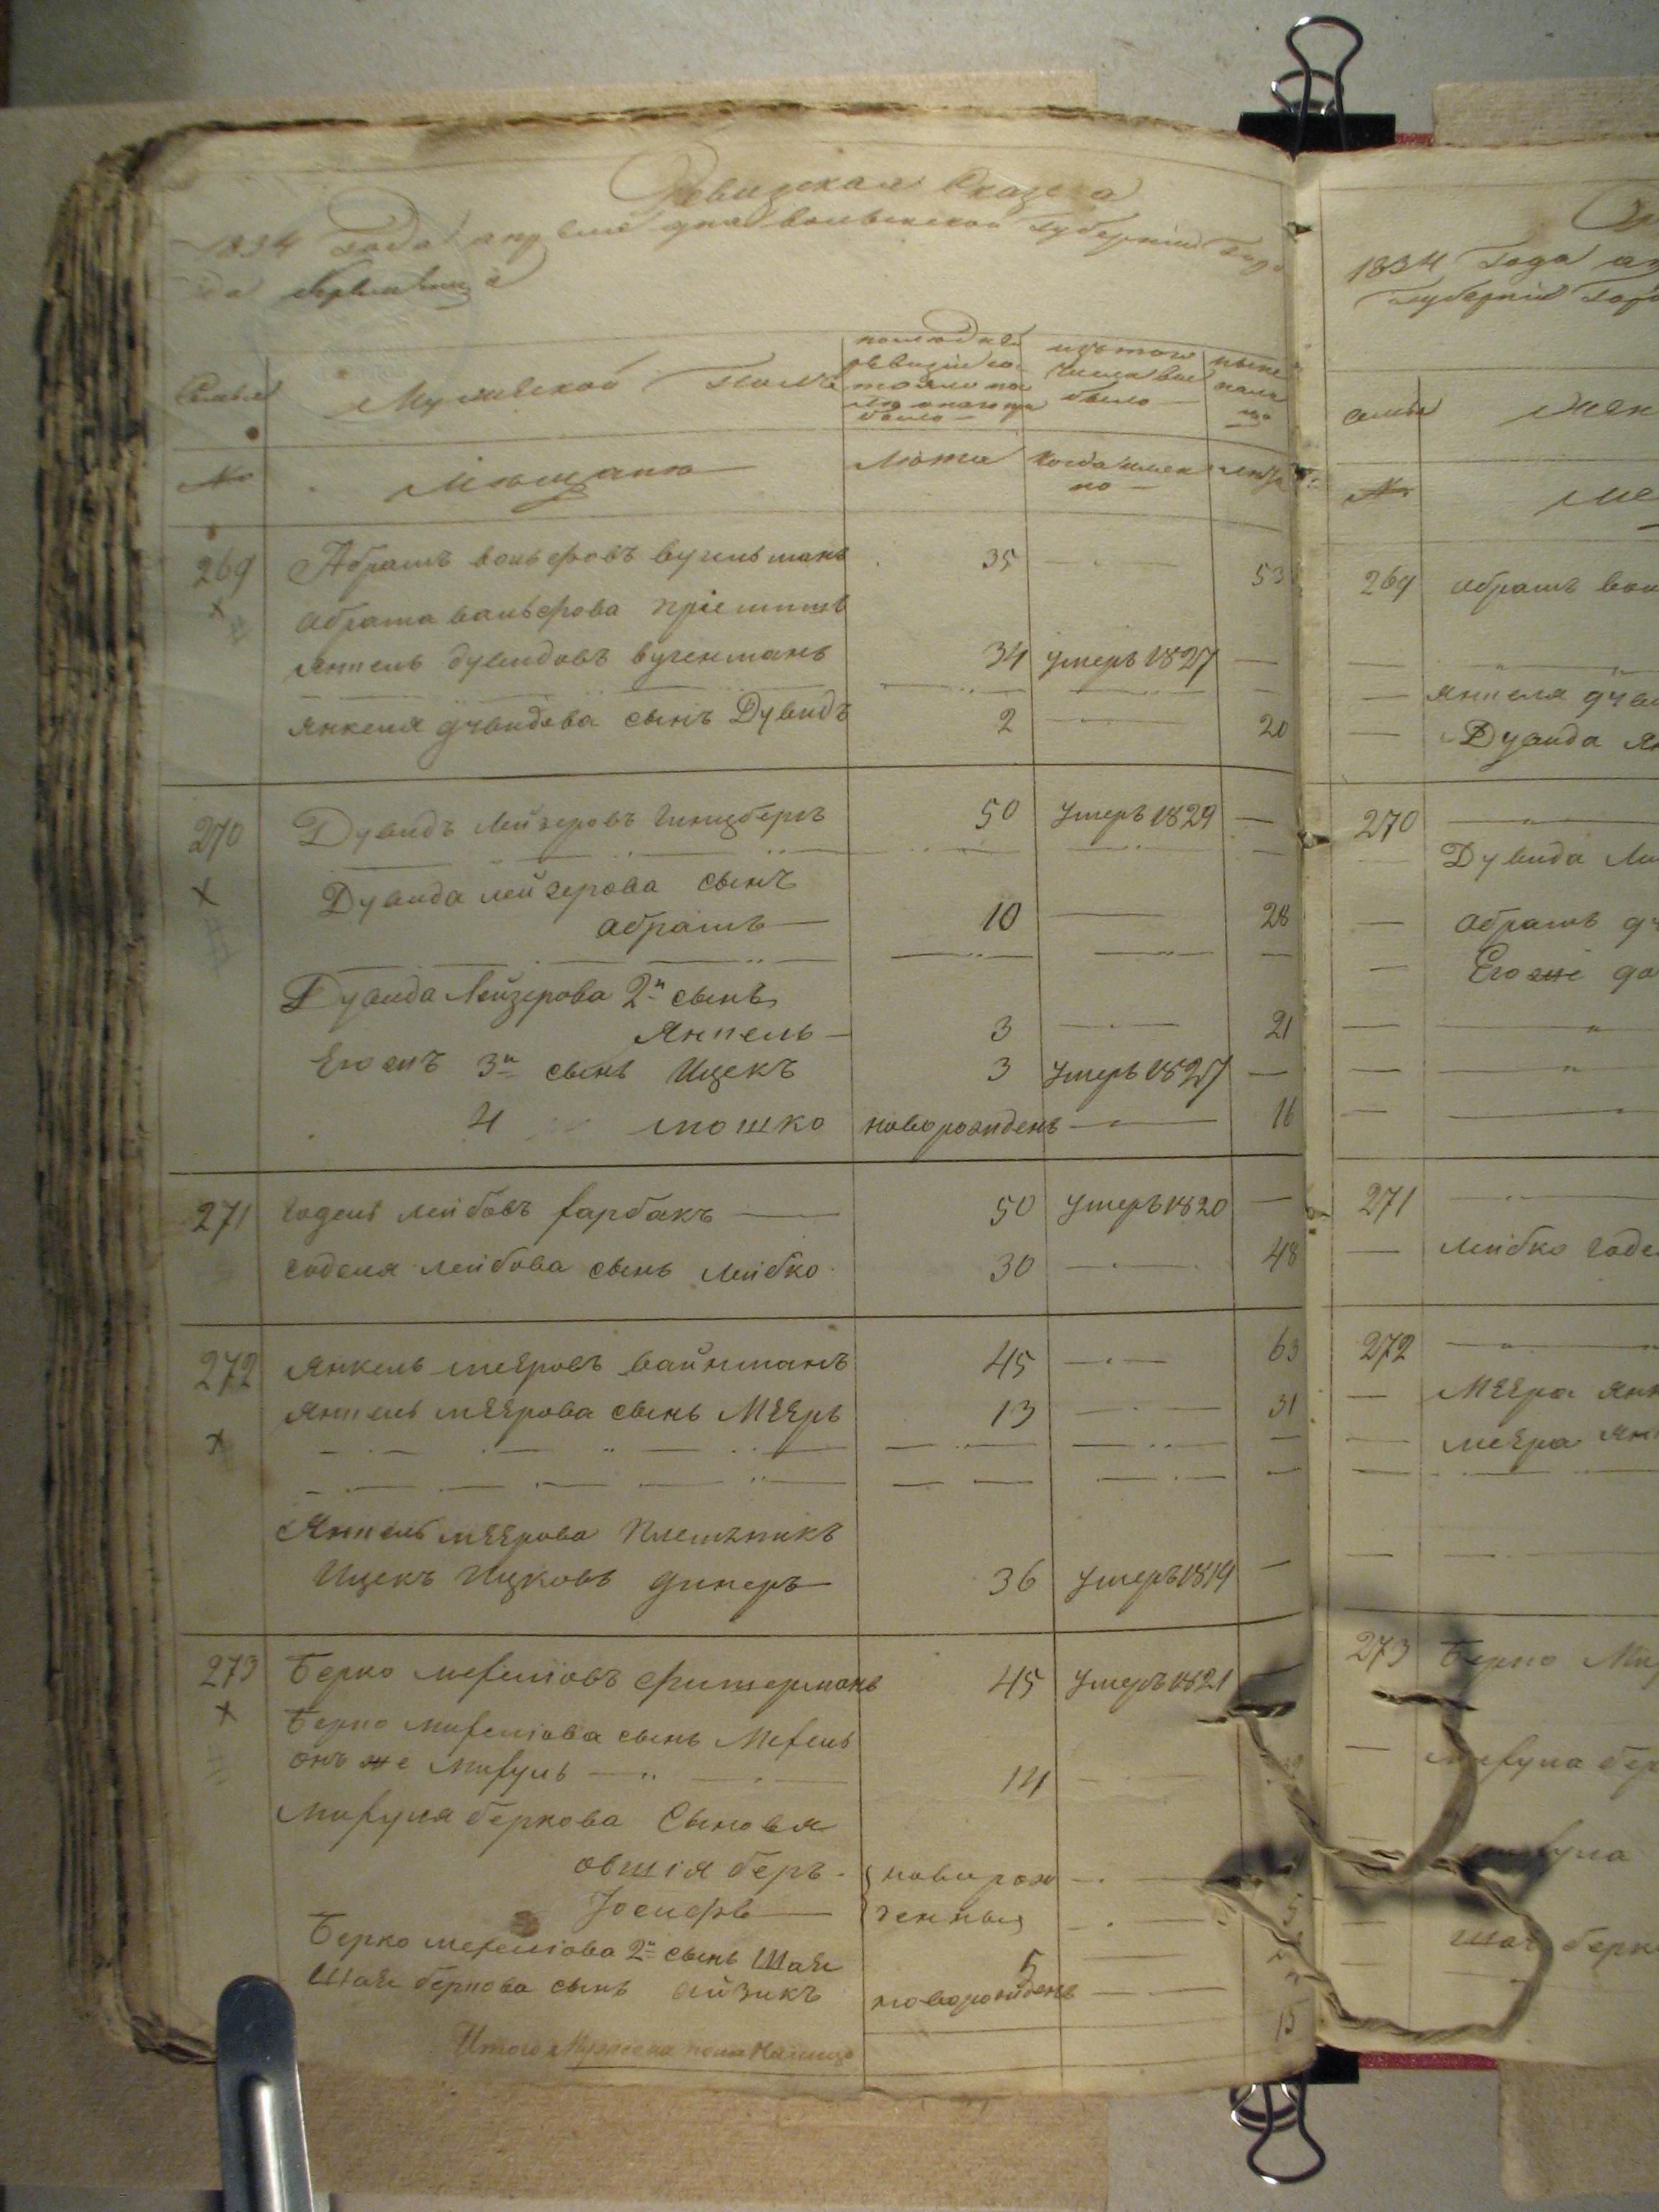 Ревизская Сказка
1834 года апреля дня волынской Губернии
Семья
Мужеской Полъ
изъ того числа выбыло
ныне налицо
№
Мещане
Лета
Когда именно
Лета
269 Абрамъ вольфовъ вугельманъ 35 53
Абрама вольфова пріемышъ
Янкель дувидовъ вугельманъ 34 умеръ 1827
Янкеля дувидова сынъ Дувидъ 2 20
270 Дувидъ Лейзеровъ Гинцбергъ 50 умеръ 1829
Дувида лейзерова сынъ
абрамъ 10 28
Дувида Лейзерова 2й сынъ
Янкель 3 21
Его жъ 3й сынъ Ицекъ 3 умеръ 1827
4 мошко новорожденъ 16
271 годель лейбовъ фарбакъ 50 умеръ 1820
годеля лейбова сынъ лейбко 30 48
272 Янкель мееровъ вайнманъ 45 63
Янкель меерова сынъ Мееръ 13 31
Янкель меерова племѣникъ
Ицекъ Ицковъ 36 умеръ 1819
273 Берко мефелiовъ фитерманъ 45 умеръ 1821
Берко мифелiова сынъ Мефель
онъ же Мифуль 14
Мифуля беркова Сыновя
овшія беръ новорож
Іосифъ денныя
Берко мефелiова 2й сынъ Шая 5
Шая беркова сынъ айзикъ новорожденъ
15
Итого Мужеска пола налицо
1834 года
Губернии
семья
№
269 абрамъ
Янкеля
Дувида
270
Дувида
абрамъ
Егоже
271
лейбко
272
Меера
меера
273 Берко
мифула
Шая берк